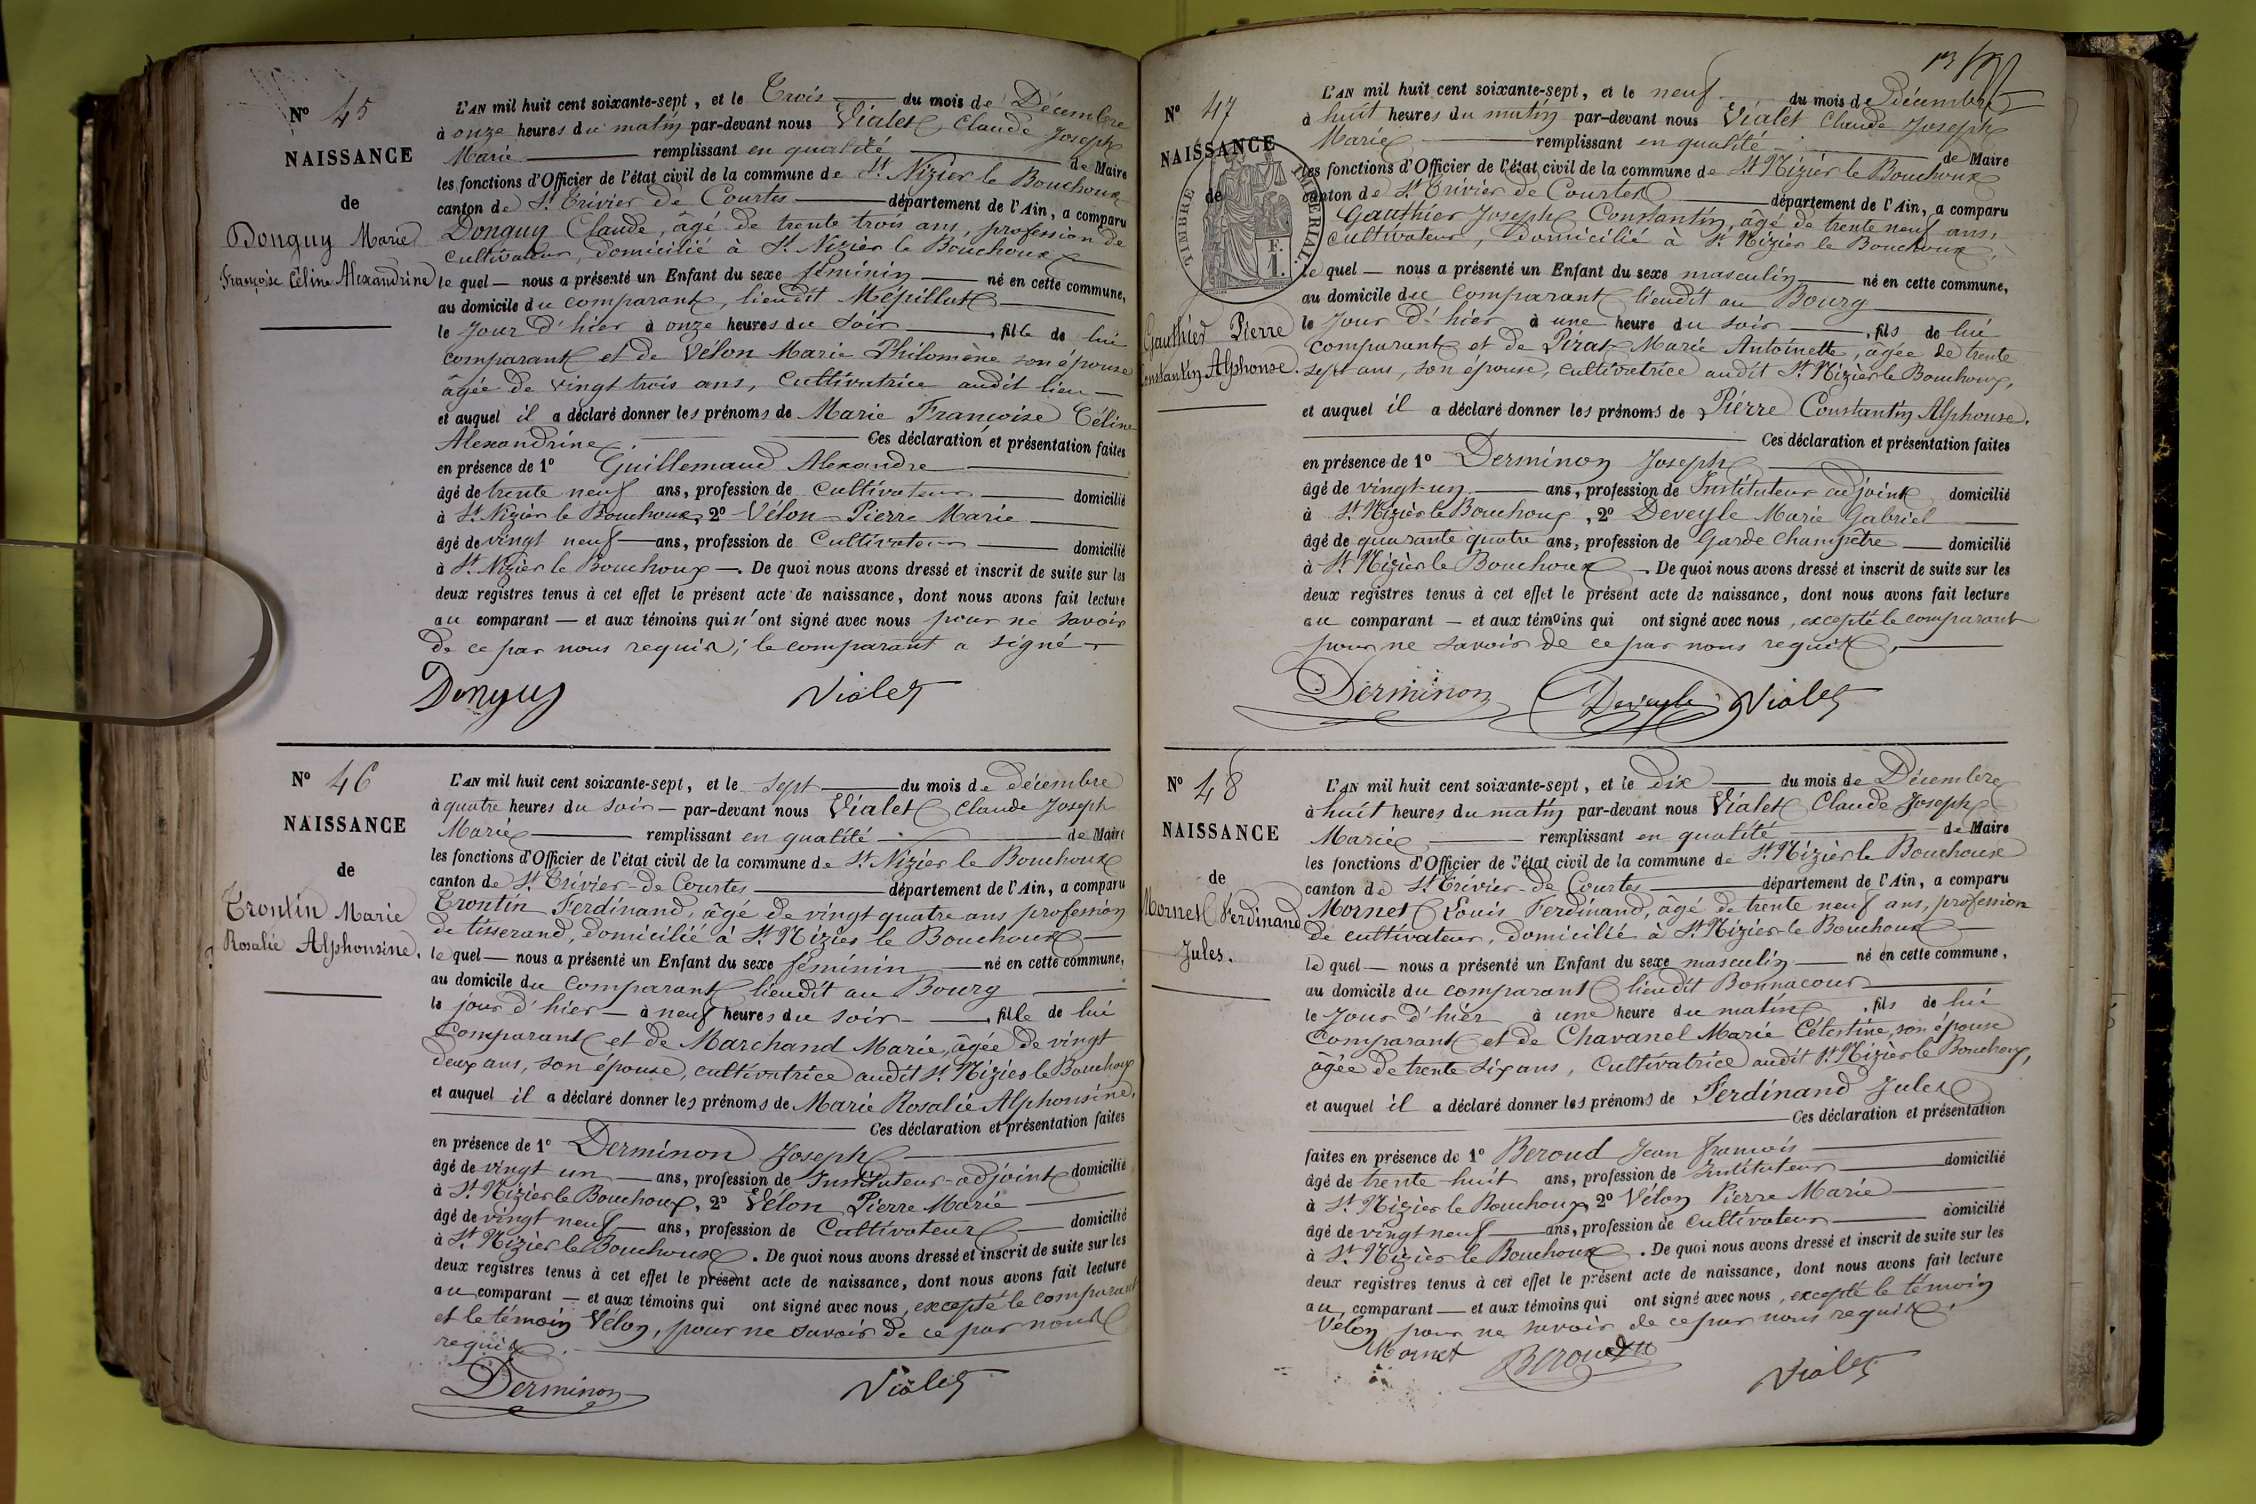 N° 45
NAISSANCE
de
Donguy Marie
Françoise Céline Alexandrine
L'AN mil huit cent soixante-sept, et le Trois du mois de Décembre
à onze heures du matin par-devant nous Vialet Claude Joseph
Marie remplissant en qualité de Maire
les fonctions d'Officier de l'état civil de la commune de St Nizier le Bouchoux
canton de St Trivier de Courtes département de l'Ain, a comparu
Donguy Claude, âgé de trente trois ans, profession de
cultivateur, domicilié à St Nizier le Bouchoux
le quel — nous a présenté un Enfant du sexe féminin né en cette commune,
au domicile du comparant, lieudit Mépillat
le jour d'hier à onze heures du soir, fille de lui
comparant et de Vélon Marie Philomène son épouse
âgée de vingt trois ans, cultivatrice audit lieu —
et auquel il a déclaré donner les prénoms de Marie Françoise Céline
Alexandrine. Ces déclaration et présentation faites
en présence de 1° Guillemaud Alexandre
âgé de trente neuf ans, profession de cultivateur domicilié
à St Nizier le Bouchoux, 2° Vélon Pierre Marie
âgé de vingt neuf ans, profession de Cultivateur domicilié
à St Nizier le Bouchoux —. De quoi nous avons dressé et inscrit de suite sur les
deux registres tenus à cet effet le présent acte de naissance, dont nous avons fait lecture
au comparant — et aux témoins qui n'ont signé avec nous pour ne savoir
de ce par nous requis; le comparant a signé —
Donguy Vialet
N° 46
NAISSANCE
de
Trontin Marie
Rosalie Alphonsine.
L'AN mil huit cent soixante-sept, et le sept du mois de décembre
à quatre heures du soir — par-devant nous Vialet Claude Joseph
Marie remplissant en qualité de Maire
les fonctions d'Officier de l'état civil de la commune de St Nizier le Bouchoux
canton de St Trivier-de Courtes département de l'Ain, a comparu
Trontin Ferdinand, âgé de vingt quatre ans profession
de tisserand, domicilié à St Nizier le Bouchoux —
le quel — nous a présenté un Enfant du sexe féminin né en cette commune,
au domicile du comparant lieudit au Bourg
le jour d'hier — à neuf heures du soir, fille de lui
comparant et de Marchand Marie, âgée de vingt
deux ans, son épouse, cultivatrice audit St Nizier le Bouchoux
et auquel il a déclaré donner les prénoms de Marie Rosalie Alphonsine,
Ces déclaration et présentation faites
en présence de 1° Derminon Joseph
âgé de vingt un ans, profession de Instituteur-adjoint domicilié
à St Nizier le Bouchoux, 2° Vélon Pierre Marie
âgé de vingt neuf — ans, profession de Cultivateur domicilié
à St Nizier le Bouchoux. De quoi nous avons dressé et inscrit de suite sur les
deux registres tenus à cet effet le présent acte de naissance, dont nous avons fait lecture
au comparant — et aux témoins qui ont signé avec nous, excepté le comparant
et le témoin Vélon, pour ne savoir de ce par nous
requis.
Derminon Vialet
N° 47
NAISSANCE
de
TIMBRE IMPÉRIAL
F.
1.
Gauthier Pierre
Constantin Alphonse.
L'AN mil huit cent soixante-sept, et le neuf du mois de Décembre
à huit heures du matin par-devant nous Vialet Claude Joseph
Marie remplissant en qualité de Maire
les fonctions d'Officier de l'état civil de la commune de St Nizier le Bouchoux
canton de St Trivier de Courtes département de l'Ain, a comparu
Gauthier Joseph Constantin, âgé de trente neuf ans,
cultivateur, domicilié à St Nizier le Bouchoux,
le quel — nous a présenté un Enfant du sexe masculin né en cette commune,
au domicile du comparant lieudit au Bourg
le jour d'hier à une heure du soir, fils de lui
comparant et de Pirat Marie Antoinette, âgée de trente
sept ans, son épouse, cultivatrice audit St Nizier le Bouchoux,
et auquel il a déclaré donner les prénoms de Pierre Constantin Alphonse.
Ces déclaration et présentation faites
en présence de 1° Derminon Joseph
âgé de vingt-un ans, profession de Instituteur adjoint domicilié
à St Nizier le Bouchoux, 2° Deveyle Marie Gabriel
âgé de quarante quatre ans, profession de Garde Champêtre — domicilié
à St Nizier le Bouchoux. De quoi nous avons dressé et inscrit de suite sur les
deux registres tenus à cet effet le présent acte de naissance, dont nous avons fait lecture
au comparant — et aux témoins qui ont signé avec nous, excepté le comparant
pour ne savoir de ce par nous requis,
Derminon Deveyle Vialet
N° 48
NAISSANCE
de
Mornet Ferdinand
Jules.
L'AN mil huit cent soixante-sept, et le dix du mois de Décembre
à huit heures du matin par-devant nous Vialet Claude Joseph
Marie remplissant en qualité de Maire
les fonctions d'Officier de l'état civil de la commune de St Nizier le Bouchoux
canton de St Trivier-de Courtes département de l'Ain, a comparu
Mornet Louis Ferdinand, âgé de trente neuf ans, profession
de cultivateur, domicilié à St Nizier le Bouchoux
le quel — nous a présenté un Enfant du sexe masculin né en cette commune,
au domicile du comparant lieudit Bonnacour
le jour d'hier à une heure du matin, fils de lui
comparant et de Chavanel Marie Célestine, son épouse
âgée de trente six ans, cultivatrice audit St Nizier le Bouchoux,
et auquel il a déclaré donner les prénoms de Ferdinand Jules
Ces déclaration et présentation
faites en présence de 1° Beroud Jean François
âgé de trente huit ans, profession de Instituteur domicilié
à St Nizier le Bouchoux, 2° Vélon Pierre Marie
âgé de vingt neuf — ans, profession de cultivateur domicilié
à St Nizier le Bouchoux. De quoi nous avons dressé et inscrit de suite sur les
deux registres tenus à cet effet le présent acte de naissance, dont nous avons fait lecture
au comparant — et aux témoins qui ont signé avec nous, excepté le témoin
Vélon pour ne savoir de ce par nous requis.
Mornet Beroud Vialet